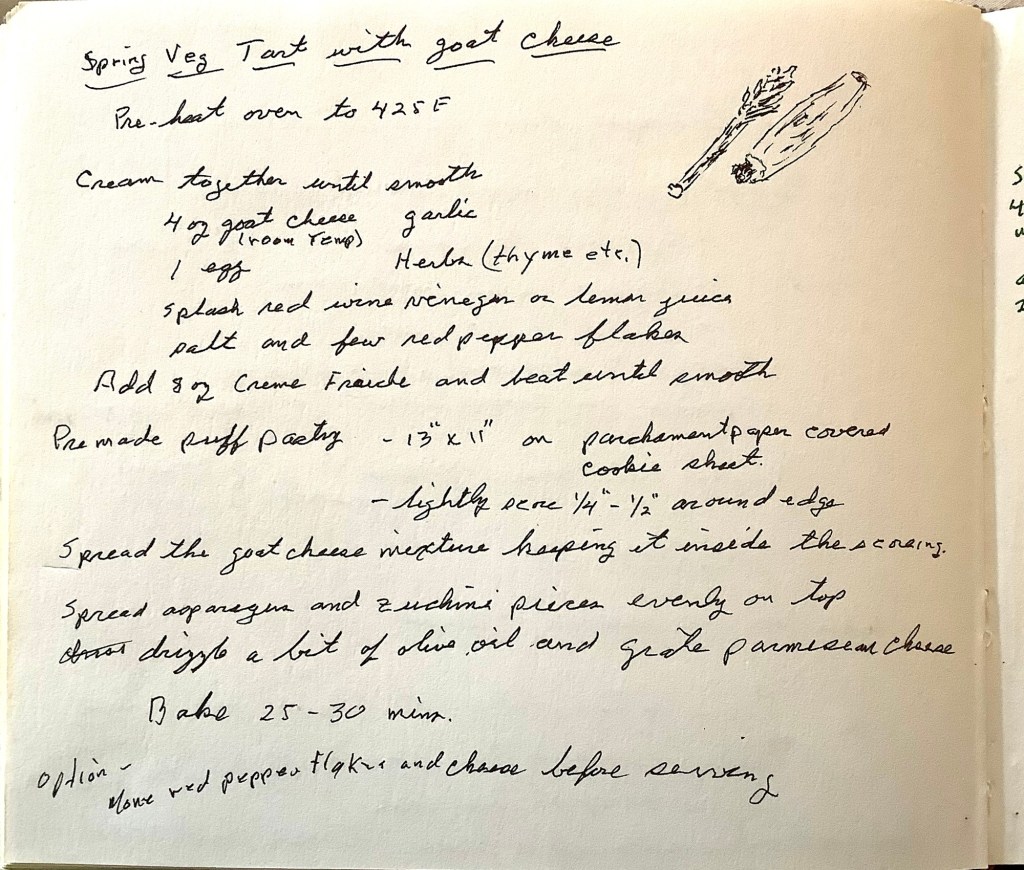 Spring Veg Tart with goat cheese
Pre-heat oven to 425 F
Cream together until smooth
4 oz goat cheese garlic
(room Temp)
1 egg Herbs (thyme etc.)
splash red wine vinegar or lemon juice
salt and few red pepper flakes
Add 8 oz Creme Fraiche and beat until smooth
Premade puff pastry - 13" x 11" on parchament paper covered
cookie sheet.
- lightly score 1/4" - 1/2" around edge
Spread the goat cheese mixture keeping it inside the scoring.
Spread asparagus and zuchini pieces evenly on top
drizzle a bit of olive oil and grate parmesean cheese
Bake 25 - 30 mins.
Option -
More red pepper flakes and cheese before serving
S
4